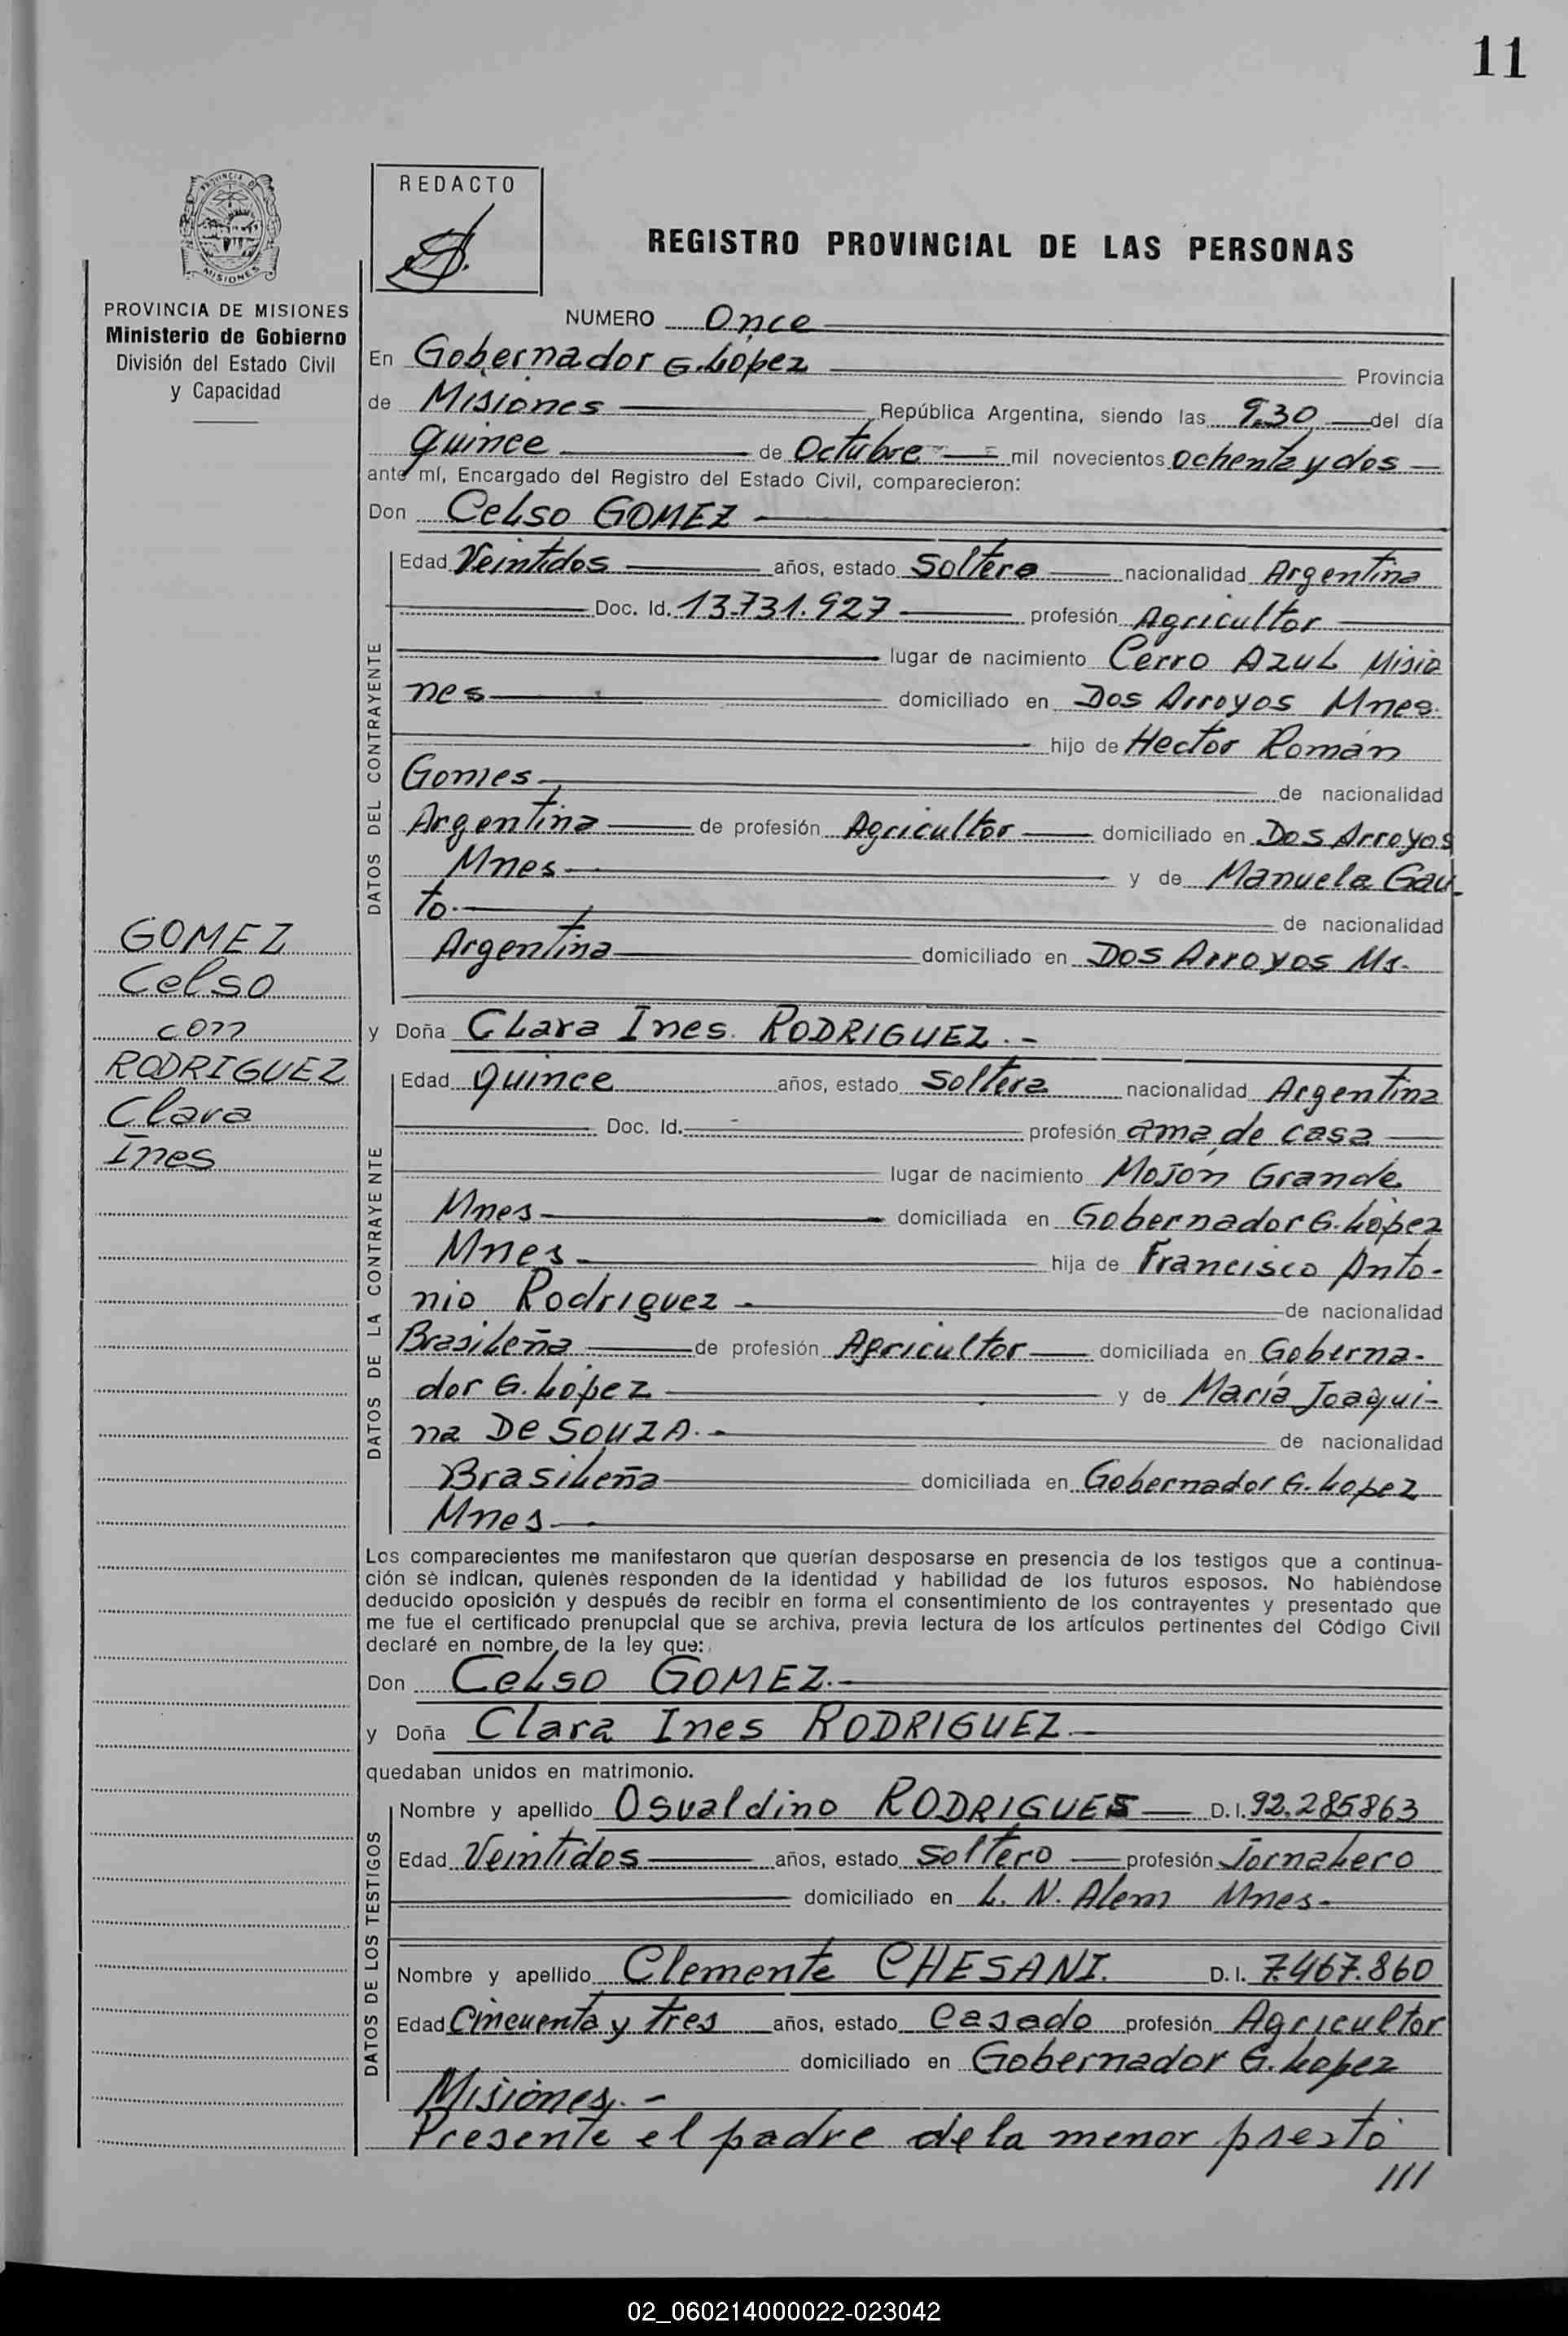 11
REDACTO
PROVINCIA DE MISIONES
REGISTRO PROVINCIAL DE LAS PERSONAS
PROVINCIA DE MISIONES
Ministerio de Gobierno
División del Estado Civil
y Capacidad
NUMERO Once
En Gobernador G. López Provincia
de Misiones República Argentina, siendo las 9.30 del día
quince de Octubre mil novecientos ochenta y dos
ante mí, Encargado del Registro del Estado Civil, comparecieron:
Don Celso GOMEZ
DATOS DEL CONTRAYENTE
Edad Veintidos años, estado Soltero nacionalidad Argentina
Doc. Id. 13.731.927 profesión Agricultor
lugar de nacimiento Cerro Azul Misio
nes domiciliado en Dos Arroyos Mnes.
hijo de Hector Román
Gomes de nacionalidad
Argentina de profesión Agricultor domiciliado en Dos Arroyos
Mnes y de Manuela Gau-
to. de nacionalidad
Argentina domiciliado en Dos Arroyos Ms.
GOMEZ
Celso
con
RODRIGUEZ
Clara
Ines
y Doña Clara Ines. RODRIGUEZ.-
DATOS DE LA CONTRAYENTE
Edad quince años, estado Soltera nacionalidad Argentina
Doc. Id. - profesión ama de casa
lugar de nacimiento Mojón Grande
Mnes domiciliada en Gobernador G. López
Mnes hija de Francisco Anto-
nio Rodriguez de nacionalidad
Brasileña de profesión Agricultor domiciliada en Goberna-
dor G. López y de María Joaqui-
na De SOUZA.- de nacionalidad
Brasileña domiciliada en Gobernador G. Lopez
Mnes
Los comparecientes me manifestaron que querían desposarse en presencia de los testigos que a continua-
ción se indican, quienes responden de la identidad y habilidad de los futuros esposos. No habiéndose
deducido oposición y después de recibir en forma el consentimiento de los contrayentes y presentado que
me fue el certificado prenupcial que se archiva, previa lectura de los artículos pertinentes del Código Civil
declaré en nombre de la ley que:
Don Celso GOMEZ.-
y Doña Clara Ines RODRIGUEZ.-
quedaban unidos en matrimonio.
DATOS DE LOS TESTIGOS
Nombre y apellido Osvaldino RODRIGUES D.I. 92.285863
Edad Veintidos años, estado Soltero profesión Jornalero
domiciliado en L. N. Alem Mnes-
Nombre y apellido Clemente CHESANI. D.I. 7.467.860
Edad Cincuenta y tres años, estado Casado profesión Agricultor
domiciliado en Gobernador G. Lopez
Misiones.-
Presente el padre de la menor prestó
///
02_060214000022-023042